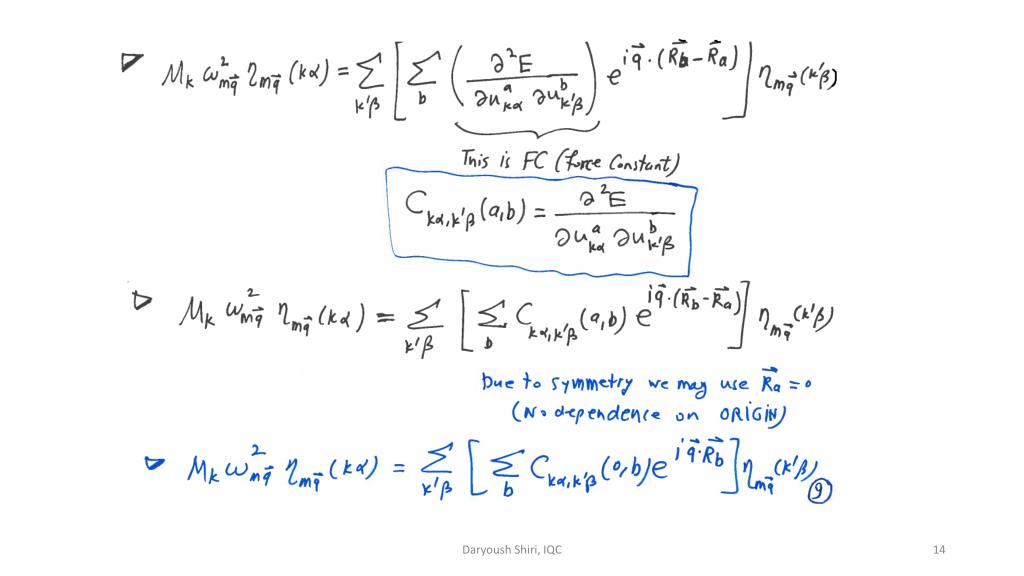 ▷ M_k ω²_{mq⃗} η_{mq⃗}(kα) = Σ_{k'β} [ Σ_b ( ∂²E / ∂u^a_{kα} ∂u^b_{k'β} ) e^{iq⃗·(R⃗b-R⃗a)} ] η_{mq⃗}(k'β)
This is FC (Force Constant)
C_{kα,k'β}(a,b) = ∂²E / ∂u^a_{kα} ∂u^b_{k'β}
▷ M_k ω²_{mq⃗} η_{mq⃗}(kα) = Σ_{k'β} [ Σ_b C_{kα,k'β}(a,b) e^{iq⃗·(R⃗b-R⃗a)} ] η_{mq⃗}(k'β)
Due to symmetry we may use R⃗a = 0
(No dependence on ORIGIN)
▷ M_k ω²_{mq⃗} η_{mq⃗}(kα) = Σ_{k'β} [ Σ_b C_{kα,k'β}(0,b) e^{iq⃗·R⃗b} ] η_{mq⃗}(k'β) ⑨
Daryoush Shiri, IQC
14